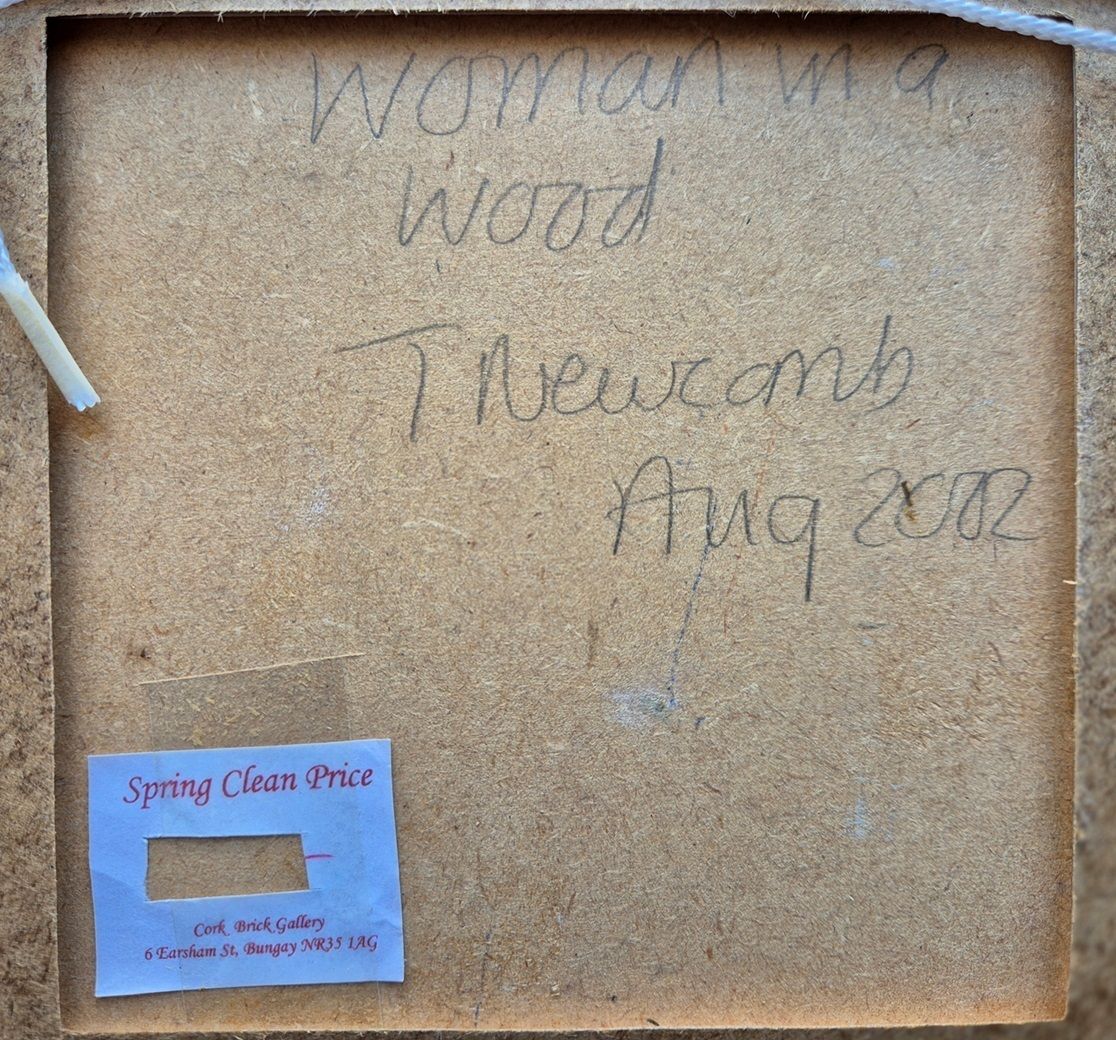 Woman in a
Wood
T Newcomb
Aug 2002
Spring Clean Price
Cork Brick Gallery
6 Earsham St, Bungay NR35 1AG